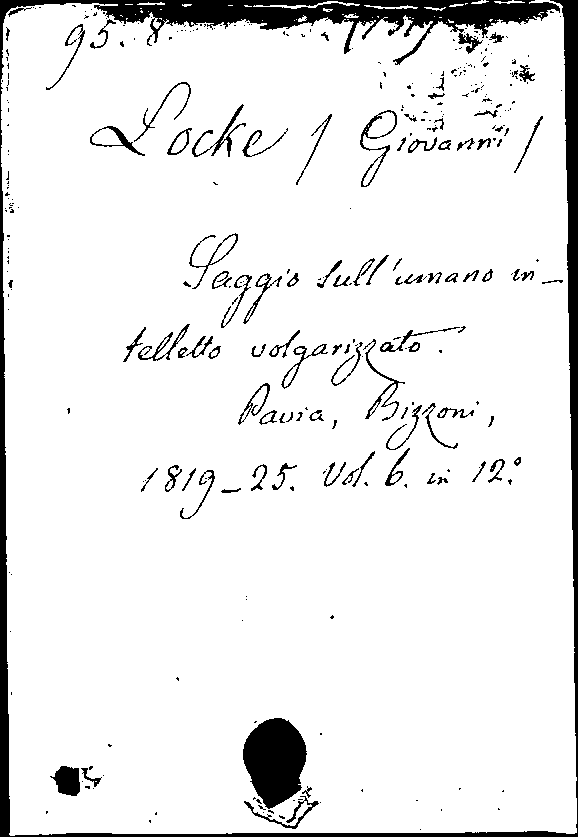 95. 8.
Locke / Giovanni /
Saggio sull'umano in-
telletto volgarizzato.
Pavia, Bizzoni,
1819-25. Vol. 6. in 12.°